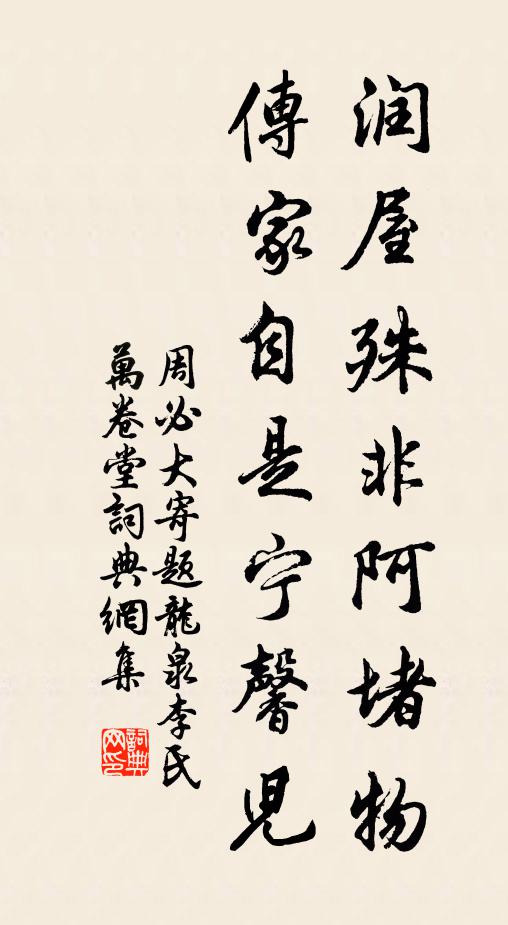 润屋殊非阿堵物
傳家自是宁馨児
周必大寄題龍泉李氏
萬卷堂詞典網集
詞典
网印